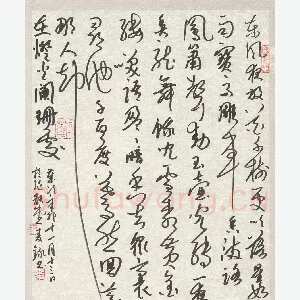 東風夜放花千樹更吹落星如
雨寶馬雕車香滿路
鳳簫聲動玉壺光轉一夜
魚龍舞蛾兒雪柳黃金
縷笑語盈盈暗香去衆裏
尋他千百度驀然回首
那人卻
在燈火闌珊處
十一月十三日